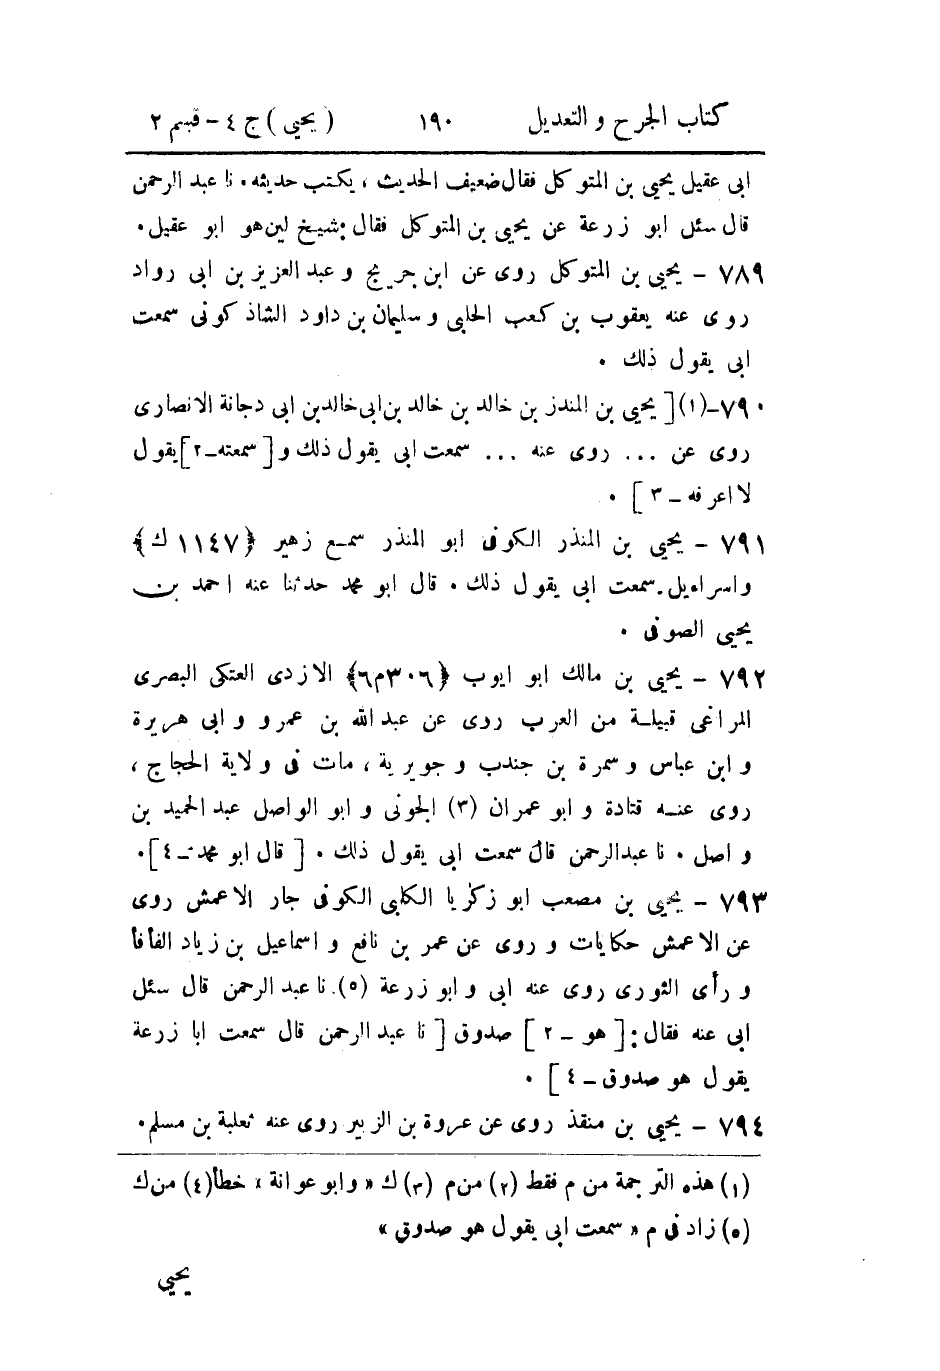 كتاب الجرح والتعديل ١٩٠ (يحيى) ج ٤ - قسم ٢
ابى عقيل يحيى بن المتوكل فقال ضعيف الحديث ، يكتب حديثه . نا عبد الرحمن
قال سئل ابو زرعة عن يحيى بن المتوكل فقال : شيخ لين هو ابو عقيل .
٧٨٩ - يحيى بن المتوكل روى عن ابن جريج وعبد العزيز بن ابى رواد
روى عنه يعقوب بن كعب الحلبى وسليمان بن داود الشاذ كونى سمعت
ابى يقول ذلك .
٧٩٠-(١) [يحيى بن المنذر بن خالد بن خالد بن ابى خالد بن ابى دجانة الانصارى
روى عن ... روى عنه ... سمعت ابى يقول ذلك و [سمعته-٢] يقول
لا اعرفه - ٣] .
٧٩١ - يحيى بن المنذر الكوفى ابو المنذر سمع زهير ﴿١١٤٧ ك﴾
واسراءيل . سمعت ابى يقول ذلك . قال ابو محمد حدثنا عنه احمد بن
يحيى الصوفى .
٧٩٢ - يحيى بن مالك ابو ايوب ﴿٣٠٦ م٦﴾ الازدى العتكى البصرى
المراغى قبيلة من العرب روى عن عبد الله بن عمرو وابى هريرة
وابن عباس وسمرة بن جندب وجويرية ، مات فى ولاية الحجاج ،
روى عنه قتادة وابو عمران (٣) الجونى وابو الواصل عبد الحميد بن
واصل . نا عبدالرحمن قال سمعت ابى يقول ذلك . [قال ابو محمد-٤] .
٧٩٣ - يحيى بن مصعب ابو زكريا الكلبى الكوفى جار الاعمش روى
عن الاعمش حكايات وروى عن عمر بن نافع واسماعيل بن زياد الفأفأ
ورأى الثورى روى عنه ابى وابو زرعة (٥) . نا عبد الرحمن قال سئل
ابى عنه فقال : [هو - ٢] صدوق [نا عبد الرحمن قال سمعت ابا زرعة
يقول هو صدوق-٤] .
٧٩٤ - يحيى بن منقذ روى عن عروة بن الزبير روى عنه ثعلبة بن مسلم .
(١) هذه الترجمة من م فقط (٢) من م (٣) ك « وابو عوانة » خطأ (٤) من ك
(٥) زاد فى م « سمعت ابى يقول هو صدوق »
يحيى